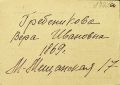 Гребенникова
Вера Ивановна
1869.
М-Мещанская 17